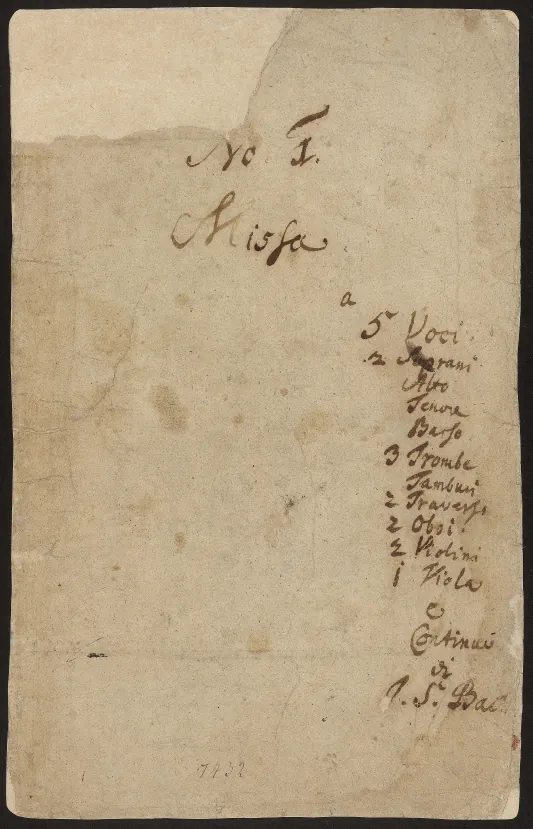 No I.
Missa
a
5 Voci.
2 Soprani
Alto
Tenore
Basso
3 Trombe
Tamburi
2 Traversi
2 Oboi.
2 Violini
1 Viola
e
Continuo
di
J. S. Bach